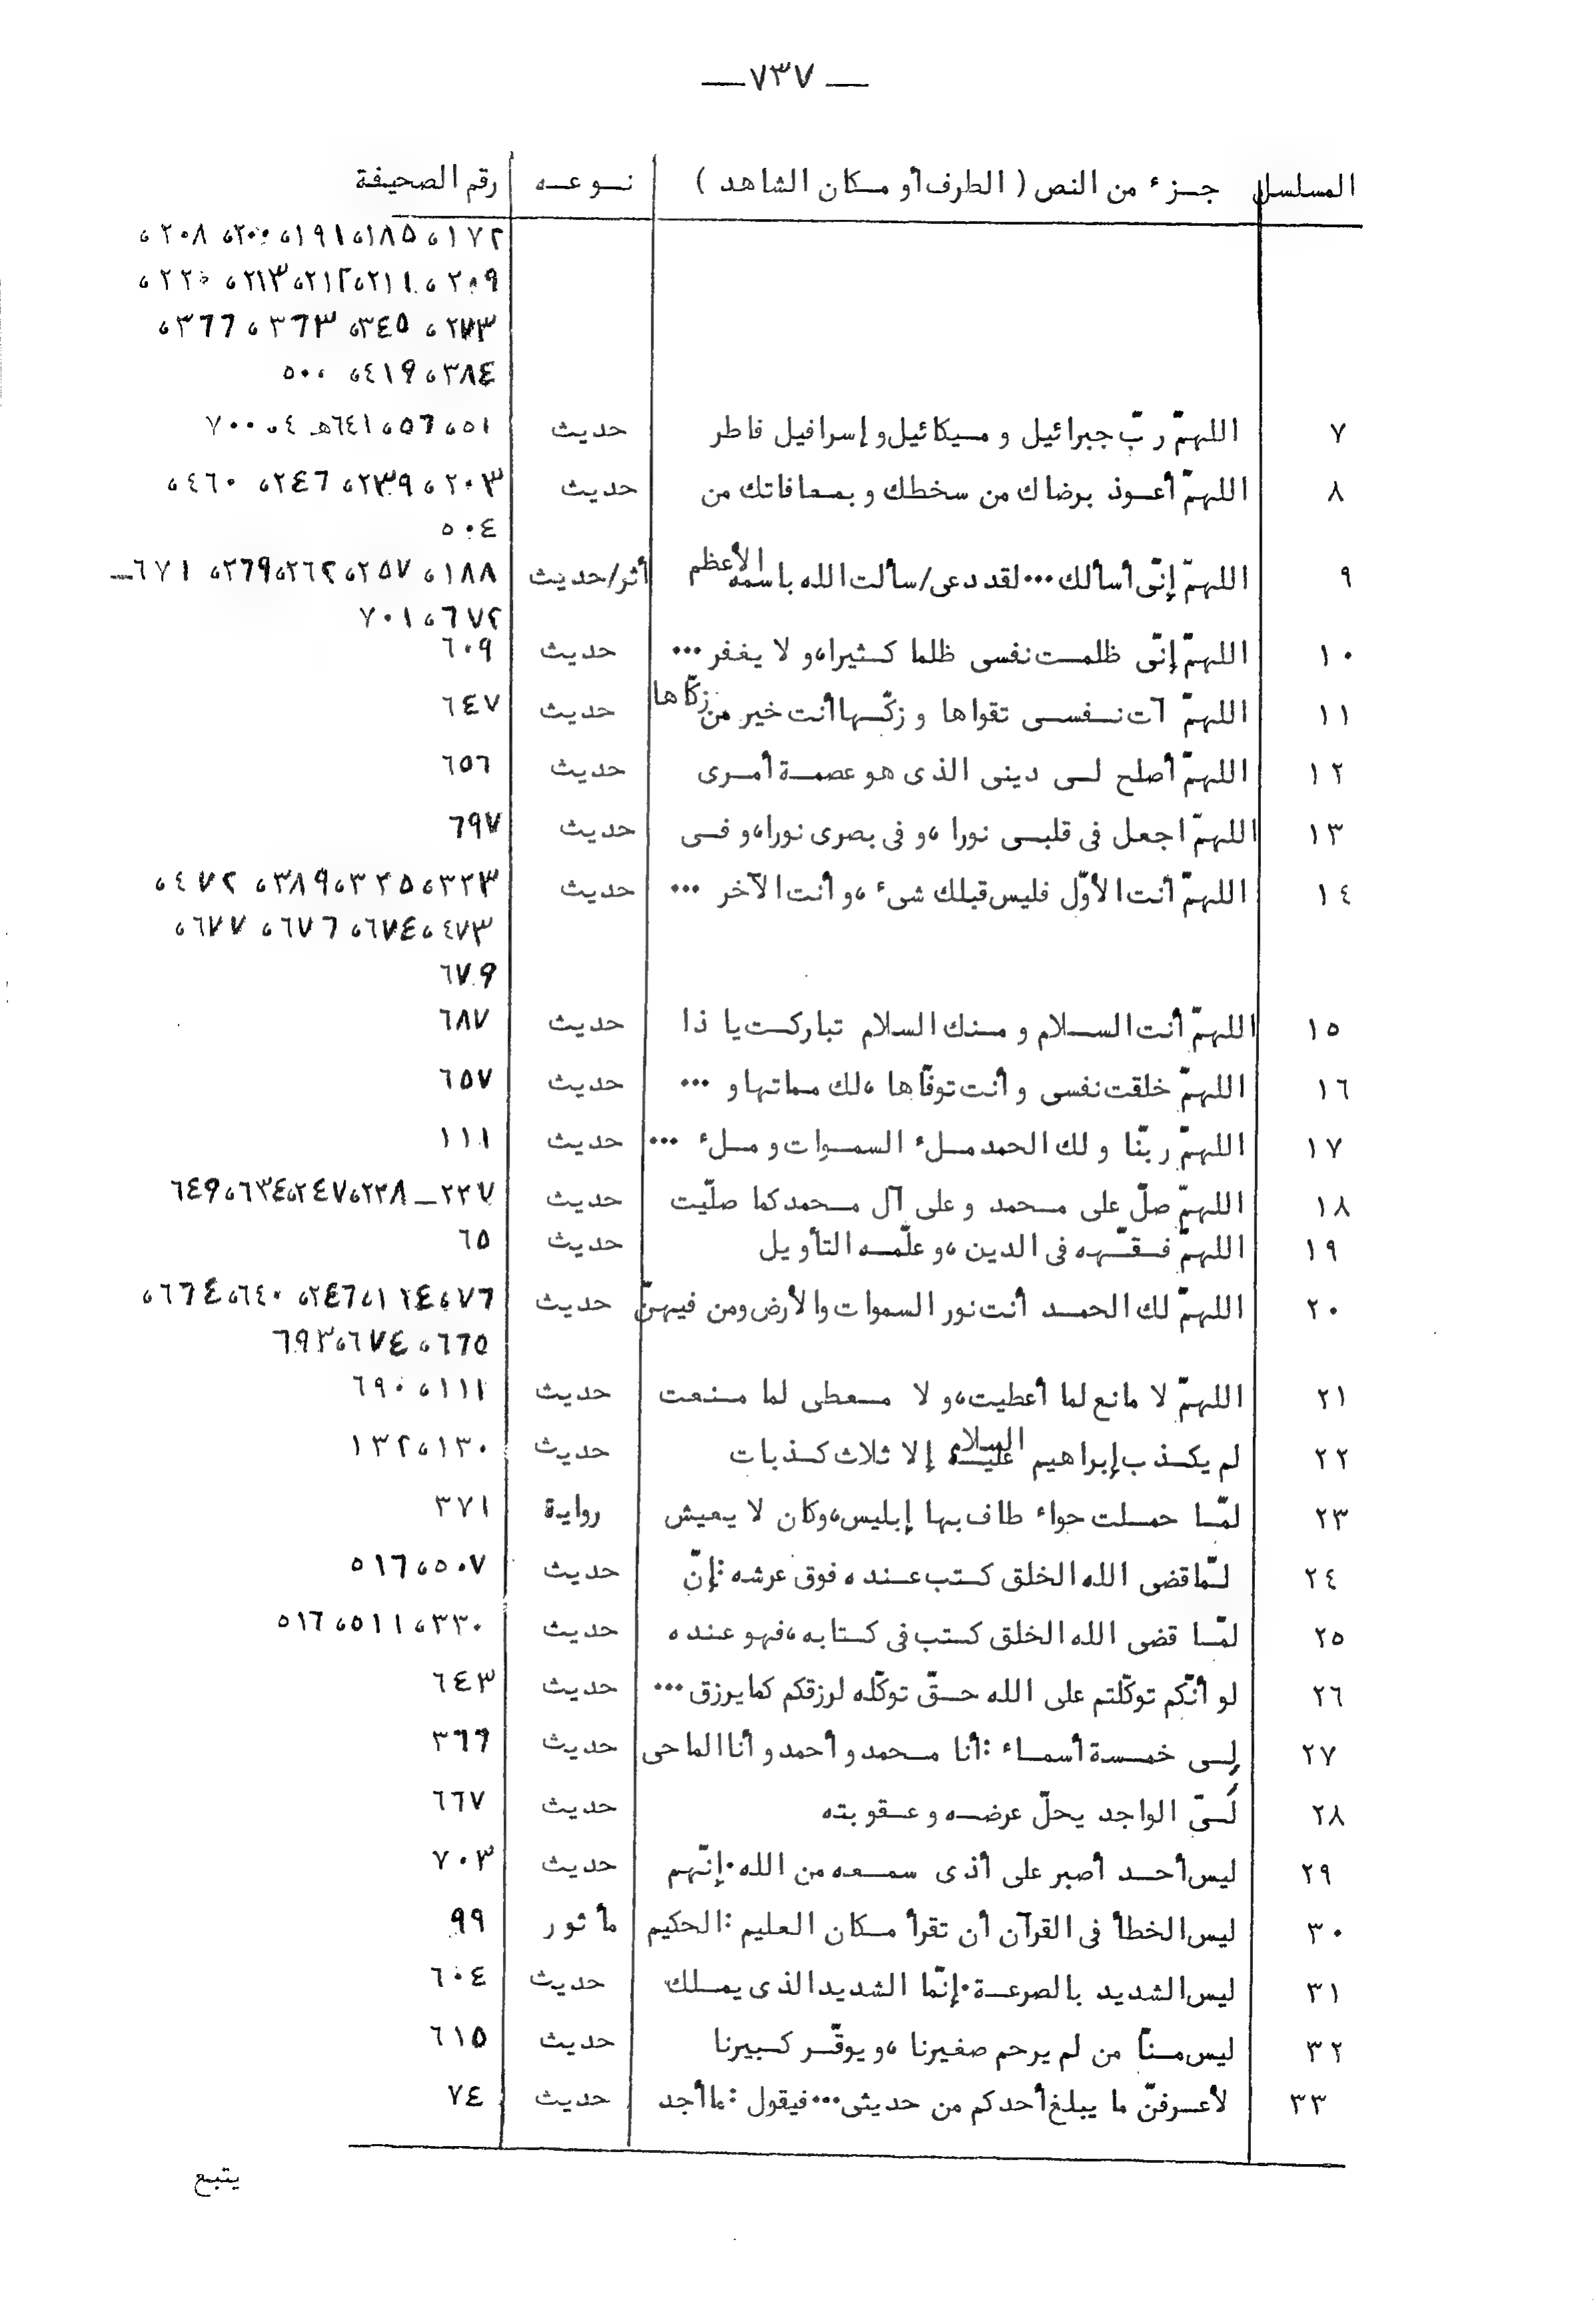 — ٧٣٧ —
المسلسل جـزء من النص ( الطرف أو مكان الشاهد ) نـوعـه رقم الصحيفة
١٧٢، ١٨٥، ١٩١، ٢٠٠، ٢٠٨،
٢٠٩، ٢١١، ٢١٢، ٢١٣، ٢٢٠،
٢٧٣، ٣٤٥، ٣٦٣، ٣٦٦،
٣٨٤، ٤١٩، ٥٠٠
٧ اللهمّ ربّ جبرائيل و ميكائيل و إسرافيل فاطر حديث ٥١، ٥٦، ٦٤١هـ ٤، ٧٠٠
٨ اللهمّ أعوذ برضاك من سخطك و بمعافاتك من حديث ٢٠٣، ٢٣٩، ٢٤٦، ٤٦٠،
٥٠٤
٩ اللهمّ إنّى أسألك ... لقد دعى/سألت الله باسمه الأعظم أثر/حديث ١٨٨، ٢٥٧، ٢٦٢، ٢٦٩، ٦٧١ــ
٦٧٢، ٧٠١
١٠ اللهمّ إنّى ظلمت نفسى ظلما كثيرا، و لا يغفر ... حديث ٦٠٩
١١ اللهمّ آت نفسى تقواها و زكّها أنت خير من زكّاها حديث ٦٤٧
١٢ اللهمّ أصلح لى دينى الذى هو عصمة أمرى حديث ٦٥٦
١٣ اللهمّ اجعل فى قلبى نورا ، و فى بصرى نورا، و فى حديث ٦٩٧
١٤ اللهمّ أنت الأوّل فليس قبلك شىء ، و أنت الآخر ... حديث ٣٢٣، ٣٢٥، ٣٨٩، ٤٧٢،
٤٧٣، ٦٧٤، ٦٧٦، ٦٧٧،
٦٧٩
١٥ اللهمّ أنت السلام و منك السلام تباركت يا ذا حديث ٦٨٧
١٦ اللهمّ خلقت نفسى و أنت توفّاها ، لك مماتها و ... حديث ٦٥٧
١٧ اللهمّ ربّنا و لك الحمد ملء السموات و ملء ... حديث ١١١
١٨ اللهمّ صلّ على محمد و على آل محمد كما صلّيت حديث ٢٣٧ــ٢٣٨، ٢٤٧، ٦٣٤، ٦٤٩
١٩ اللهمّ فقّهه فى الدين ، و علّمه التأويل حديث ٦٥
٢٠ اللهمّ لك الحمد أنت نور السموات والأرض ومن فيهنّ حديث ٧٦، ١٢٤، ٢٤٦، ٦٤٠، ٦٦٤،
٦٦٥، ٦٧٤، ٦٩٣
٢١ اللهمّ لا مانع لما أعطيت، و لا معطى لما منعت حديث ١١١، ٦٩٠
٢٢ لم يكذب إبراهيم عليه السلام إلا ثلاث كذبات حديث ١٣٠، ١٣٢
٢٣ لمّا حملت حواء طاف بها إبليس، وكان لا يعيش رواية ٣٧١
٢٤ لمّا قضى الله الخلق كتب عنده فوق عرشه : إنّ حديث ٥٠٧، ٥١٦
٢٥ لمّا قضى الله الخلق كتب فى كتابه، فهو عنده حديث ٣٣٠، ٥١١، ٥١٦
٢٦ لو أنّكم توكّلتم على الله حقّ توكّله لرزقكم كما يرزق ... حديث ٦٤٣
٢٧ لِى خمسة أسماء : أنا محمد و أحمد و أنا الماحى حديث ٣٦٦
٢٨ لَىّ الواجد يحلّ عرضه و عقوبته حديث ٦٦٧
٢٩ ليس أحد أصبر على أذى سمعه من الله . إنّهم حديث ٧٠٣
٣٠ ليس الخطأ فى القرآن أن تقرأ مكان العليم : الحكيم مأثور ٩٩
٣١ ليس الشديد بالصرعة . إنّما الشديد الذى يملك حديث ٦٠٤
٣٢ ليس منّا من لم يرحم صغيرنا ، و يوقّر كبيرنا حديث ٦١٥
٣٣ لأعرفنّ ما يبلغ أحدكم من حديثى ... فيقول : ما أجد حديث ٧٤
يتبع